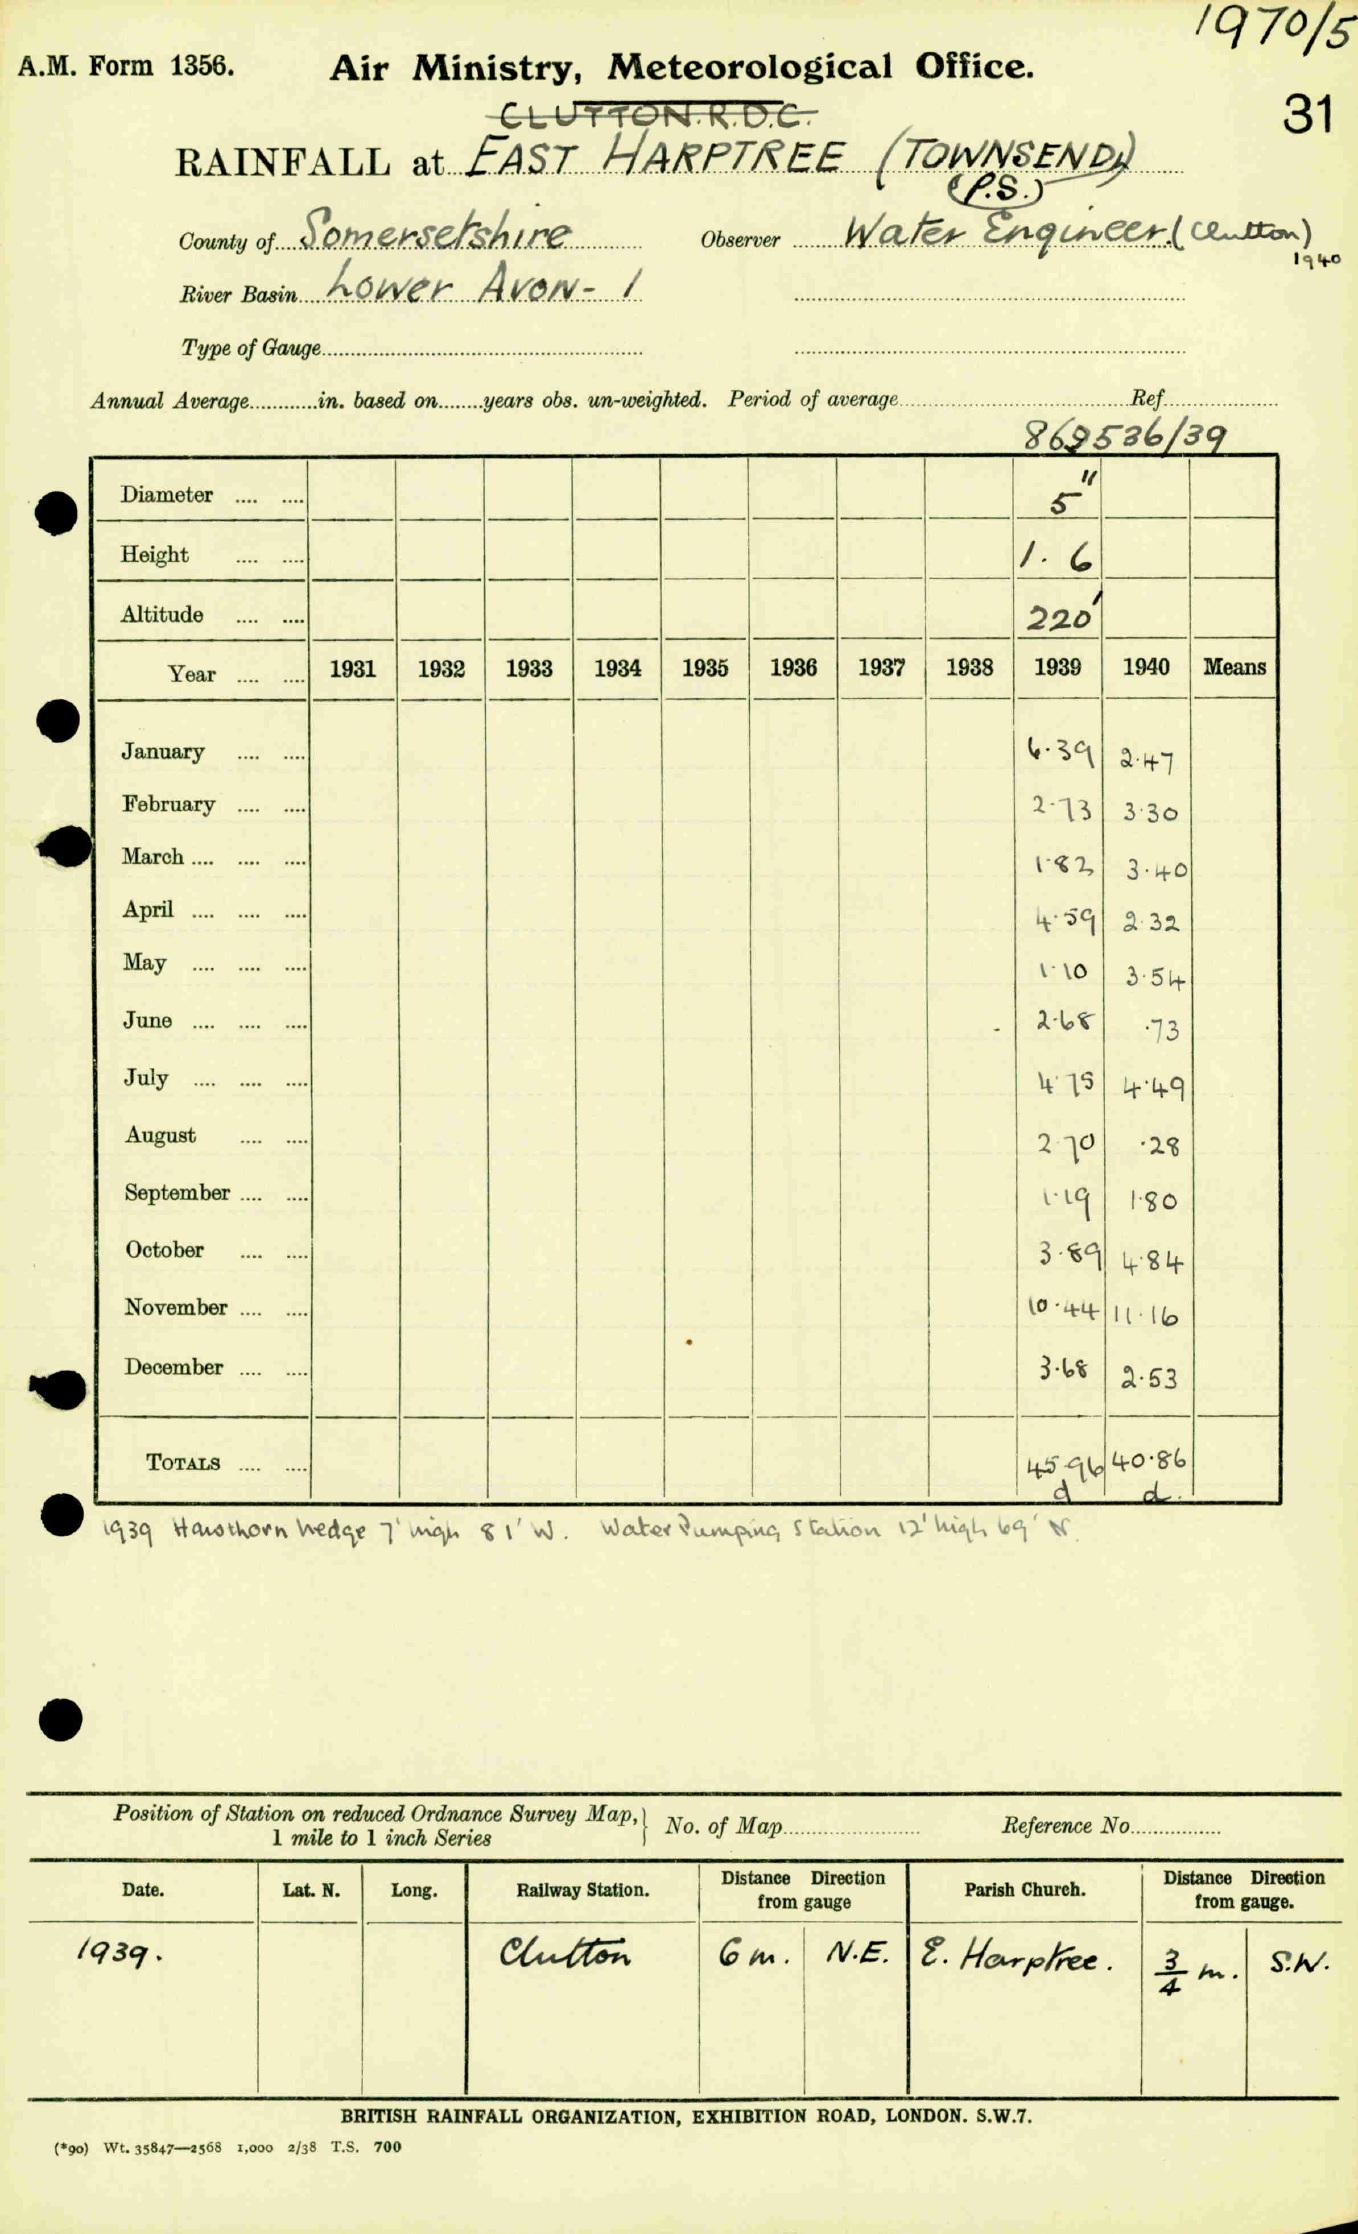 1970/5
A.M. Form 1356. Air Ministry, Meteorological Office.
31
CLUTTON. R.D.C.
RAINFALL at EAST HARPTREE (TOWNSEND)
(P.S.)
County of Somersetshire Observer Water Engineer. (Clutton)
1940
River Basin Lower Avon - 1
Type of Gauge
Annual Average............in. based on........years obs. un-weighted. Period of average Ref.
536/39
Diameter .... .... 5"
Height .... .... 1. 6
Altitude .... .... 220'
Year .... .... 1931 1932 1933 1934 1935 1936 1937 1938 1939 1940 Means
January .... .... 6.39 2.47
February .... .... 2.73 3.30
March .... .... .... 1.82 3.40
April .... .... .... 4.59 2.32
May .... .... .... 1.10 3.54
June .... .... .... 2.68 .73
July .... .... .... 4.75 4.49
August .... .... 2.70 .28
September .... .... 1.19 1.80
October .... .... 3.89 4.84
November .... .... 10.44 11.16
December .... .... 3.68 2.53
TOTALS .... .... 45.96 40.86
d d.
1939 Hawthorn hedge 7' high 81' W. Water Pumping Station 12' high 69' N.
Position of Station on reduced Ordnance Survey Map, } No. of Map Reference No
1 mile to 1 inch Series
Date. Lat. N. Long. Railway Station. Distance Direction from gauge Parish Church. Distance Direction from gauge.
1939. Clutton 6 m. N.E. E. Harptree. 3/4 m. S.W.
BRITISH RAINFALL ORGANIZATION, EXHIBITION ROAD, LONDON. S.W.7.
(*90) Wt. 35847—2568 1,000 2/38 T.S. 700